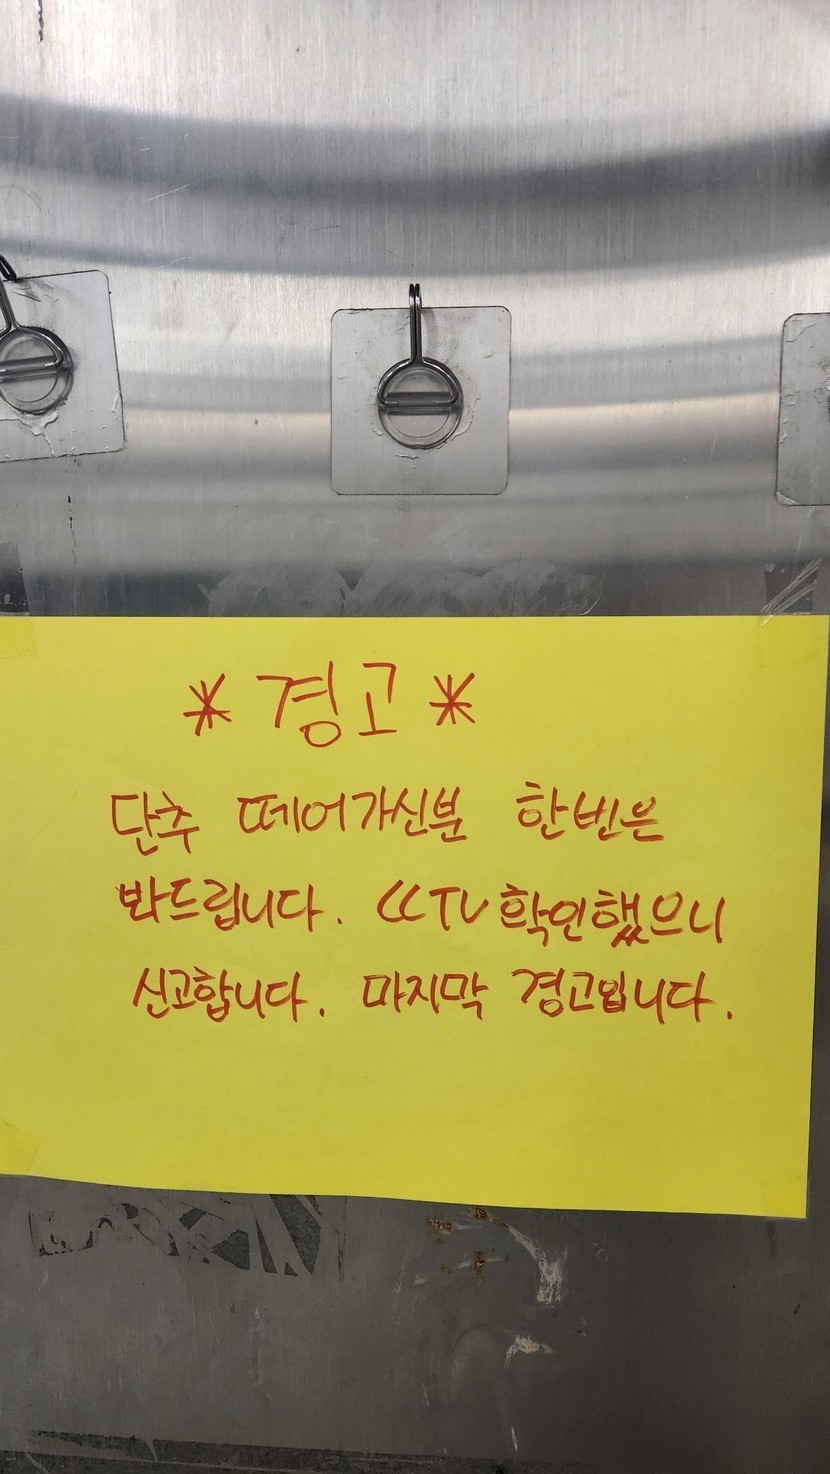 * 경고 *
단추 떼어가신분 한번은
봐드립니다. CCTV 확인했으니
신고합니다. 마지막 경고입니다.